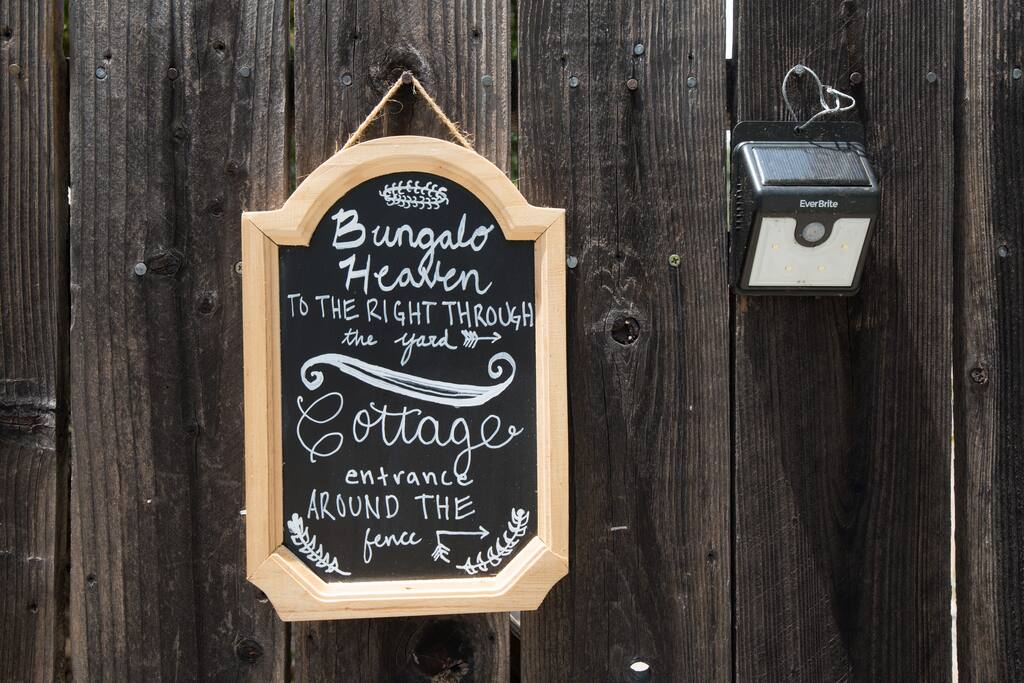 Bungalo
Heaven
TO THE RIGHT THROUGH
the yard
Cottage
entrance
AROUND THE
fence
EverBrite